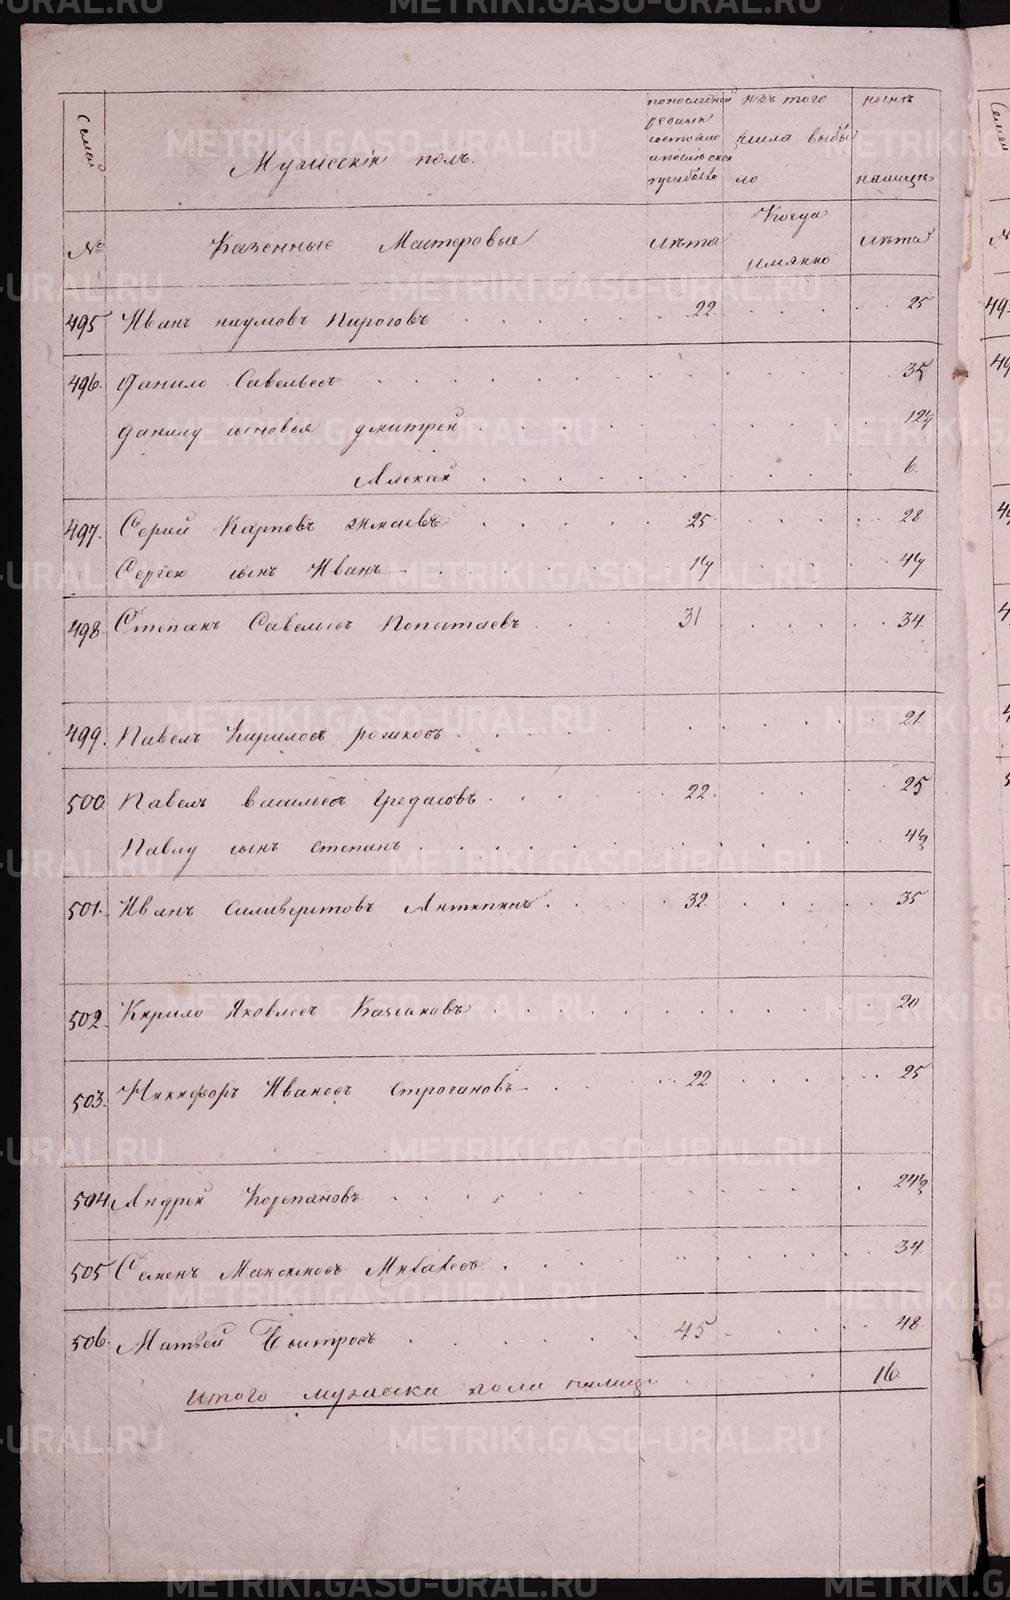 Семьи
Мужескій полъ.
по последней ревизіи состояло и после оной прибыло
изъ того числа выбыло
ныне на лицо
№
Казенные Мастеровые
лѣта
Когда имянно
лѣта
495 Иванъ наумовъ Пироговъ 22. 25
496. Данило Савельевъ 35½
Данилу сыновья дмитрей 12½
Алексей 6.
497. Сергей Карповъ 25 28
Сергею сынъ Иванъ 1½ 4½
498 Степанъ Савельевъ 31 34.
499. Павелъ Кириловъ рожковъ 21
500 Павелъ васильевъ Гредасовъ 22. 25
Павлу сынъ степанъ
501. Иванъ силиверстовъ Антипинъ 32. 35
502. Кирило Яковлевъ Казаковъ 20
503. Никифоръ Ивановъ Строгановъ 22 25
504 Андрей Корепановъ
505 Семенъ Максимовъ 34.
506. Матвей Быстровъ 45 48.
итого мужеска пола налицо 16
METRIKI.GASO-URAL.RU